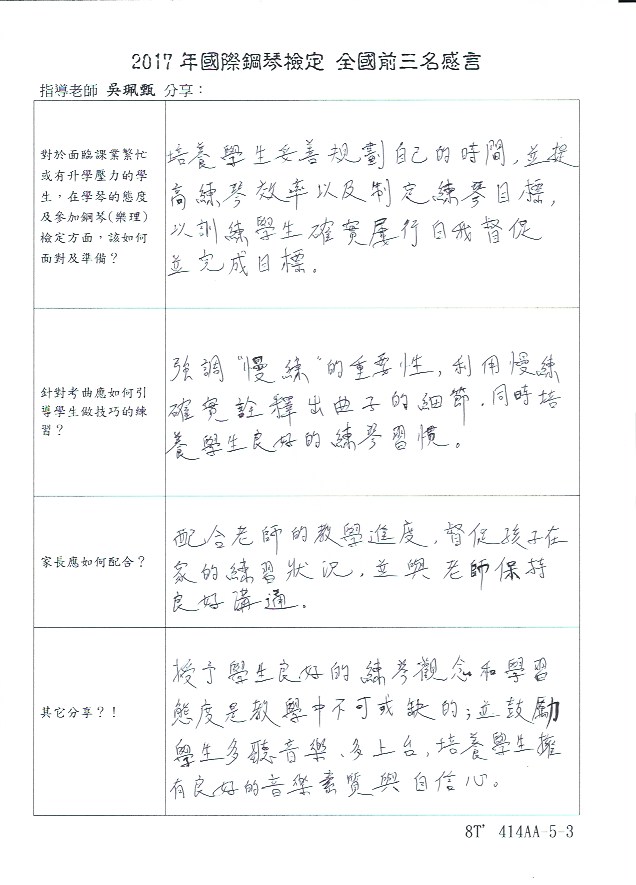 2017 年國際鋼琴檢定 全國前三名感言
指導老師 吳珮甄 分享：
對於面臨課業繁忙
或有升學壓力的學
生，在學琴的態度
及參加鋼琴(樂理)
檢定方面，該如何
面對及準備？
培養學生妥善規劃自己的時間，並提
高練琴效率以及制定練琴目標，
以訓練學生確實履行自我督促
並完成目標。
針對考曲應如何引
導學生做技巧的練
習？
強調"慢練"的重要性，利用慢練
確實詮釋出曲子的細節，同時培
養學生良好的練琴習慣。
家長應如何配合？
配合老師的教學進度，督促孩子在
家的練習狀況，並與老師保持
良好溝通。
其它分享？！
授予學生良好的練琴觀念和學習
態度是教學中不可或缺的；並鼓勵
學生多聽音樂、多上台，培養學生擁
有良好的音樂素質與自信心。
8T' 414AA-5-3